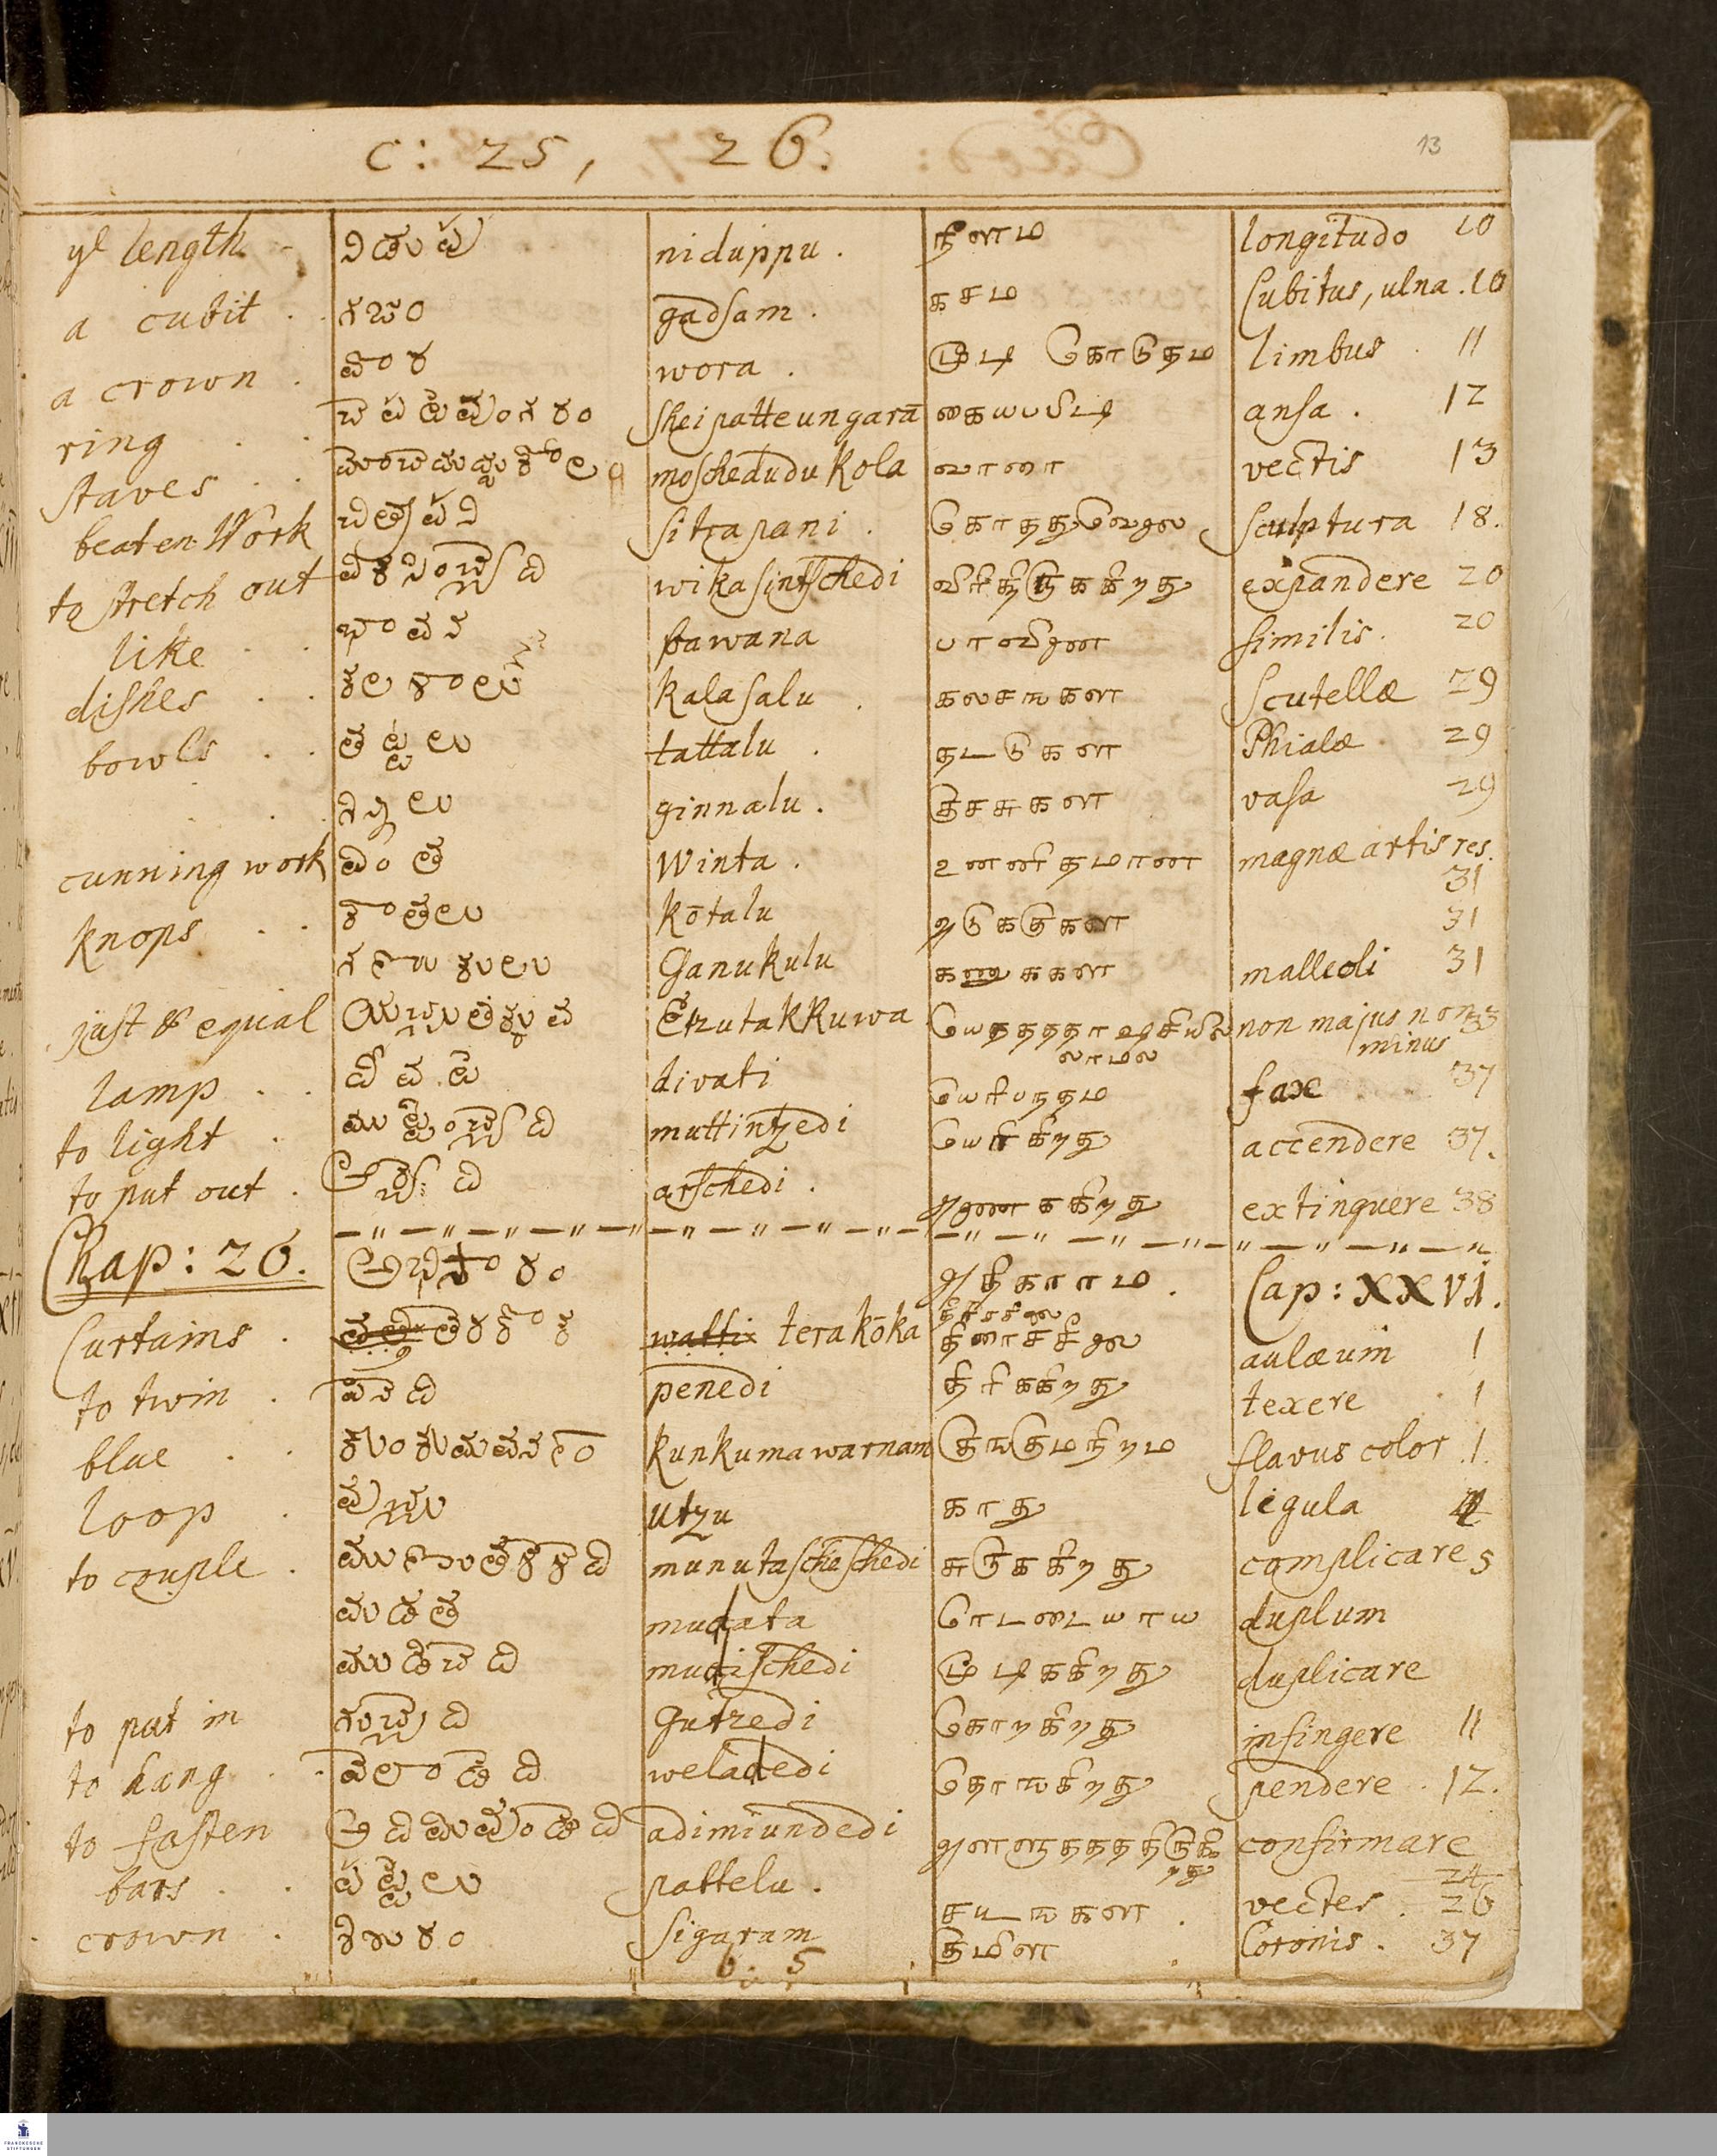 c: 25, 26.
13
ye length నిడుపు niduppu. நீளம longitudo 10
a cubit గజం gadsam. கசம Cubitus, ulna. 10
a crown వోర wora. முடி கொடுதம limbus 11
ring చెపట్టెవుంగరం sheipatteungarā கையபபிடி ansa. 12
staves మోచెదుడుకోల moschedudukola vectis 13
beaten Work చిత్రపని sitrapani. கொதததுவேலை sculptura 18.
to stretch out wikasintschedi விரிதிருககிறது expandere 20
like pawana similis. 20
dishes కలశాలు kalasalu. கலசஙகள Scutellæ 29
bowls తట్టలు tattalu. தடடுகள Phialæ 29
గిన్నెలు ginnalu. vasa 29
cunning work వింత Winta. உனனிதமான magnæ artis res. 31
knops కోతలు kōtalu அடுககுகள 31
గణుకులు Ganukulu கணுககள malleoli 31
just & equal Etzutakkuwa non majus non 33
லாமல minus
lamp దివటి divati fax 37
to light ముట్టించేది muttintzedi accendere 37.
to put out. ఆర్చేది arschedi. அணைககிறது extinguere 38
Chap: 26. అధికారం அதிகாரம. Cap: XXVI.
Curtains. తెరకోక watti terakōka திரைசசீலை aulæum 1
to twin. పేనేది penedi திரிககிறது texere 1
blue కుంకుమవర్ణం kunkumawarnam குஙகுமநிறம flavus color. 1.
loop utzu காது ligula 4
to couple. munutascheschedi சுருககிறது complicare 5
ముడత mudata duplum
ముడిచేది mudischedi முடிககிறது duplicare
to put in గుచ్చేది Gutzedi infingere 11
to hang వేలాడేది weladedi தொஙகிறது pendere. 12.
to fasten అదిమివుండేది adimiundedi confirmare 24
bars పట్టెలు pattelu. சடடஙகள. vectes. 26
crown శిఖరం Sigaram குமிள Coronis. 37
b. 5
FRANCKESCHE STIFTUNGEN